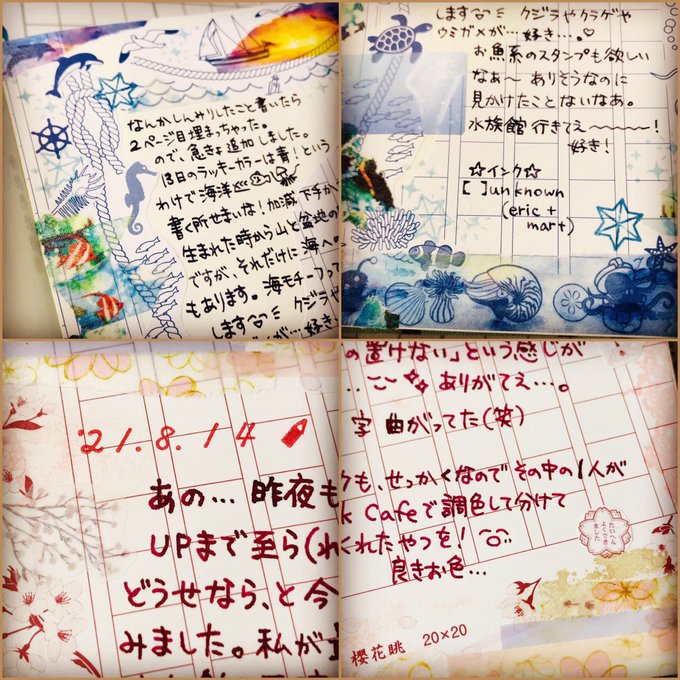 なんかしんみりしたこと書いたら
2ページ目埋まっちゃった。
ので、急きょ追加しました。
13日のラッキーカラーは青！という
わけで海洋
書く所せまいな！加減下手か
生まれた時から山と盆地の
ですが、それだけに海への
もあります。海モチーフって
します クジラや
ウミガメが…好き
します クジラやクラゲや
ウミガメが…好き…。♡
お魚系のスタンプも欲しい
なぁ〜 ありそうなのに
見かけたことないなあ。
水族館行きてえ〜〜〜〜！
好き！
☆インク☆
【 】unknown
(eric +
mart)
'21.8.14
あの… 昨夜も
UPまで至ら(れ
どうせなら、と今
みました。私が
の置けない」という感じが
ありがてえ…。
字曲がってた(笑)
も、せっかくなのでその中の1人が
k Cafeで調色して分けて
くれたやつを！
良きお色…
たいへん
よくでき
ました
櫻花眺 20×20